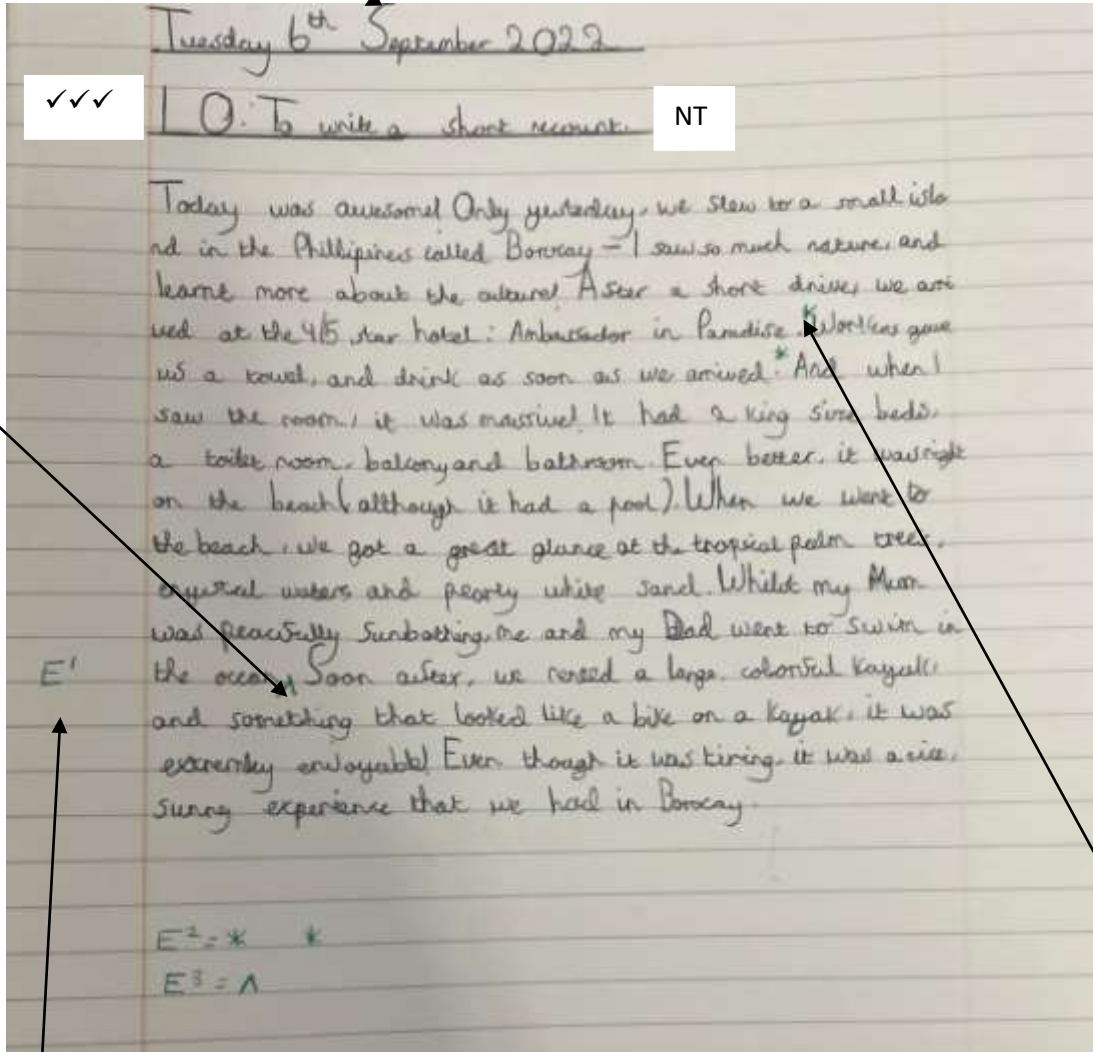 Tuesday 6th September 2022
✓✓✓
LO: To write a short recount.
NT
Today was awesome! Only yesterday, we flew to a small isla
nd in the Phillipines called Borocay – I saw so much nature, and
learnt more about the culture! After a short drive, we arri
ved at the 4/5 star hotel: Ambassador in Paradise.* Workers gave
us a towel, and drink as soon as we arrived.* And when I
saw the room, it was massive! It had 2 king size beds,
a toilet room, balcony and bathroom. Even better, it was right
on the beach (although it had a pool). When we went to
the beach, we got a great glance at the tropical palm trees,
waters and pearly white sand. Whilst my Mum
was peacfully sunbathing, me and my Dad went to swim in
E1
the ocean.^ Soon after, we rented a large, colorful kayak,
and something that looked like a bike on a kayak, it was
enjoyable! Even though it was tiring, it was a nice,
sunny experience that we had in Borocay.
E2 = * *
E3 = ^